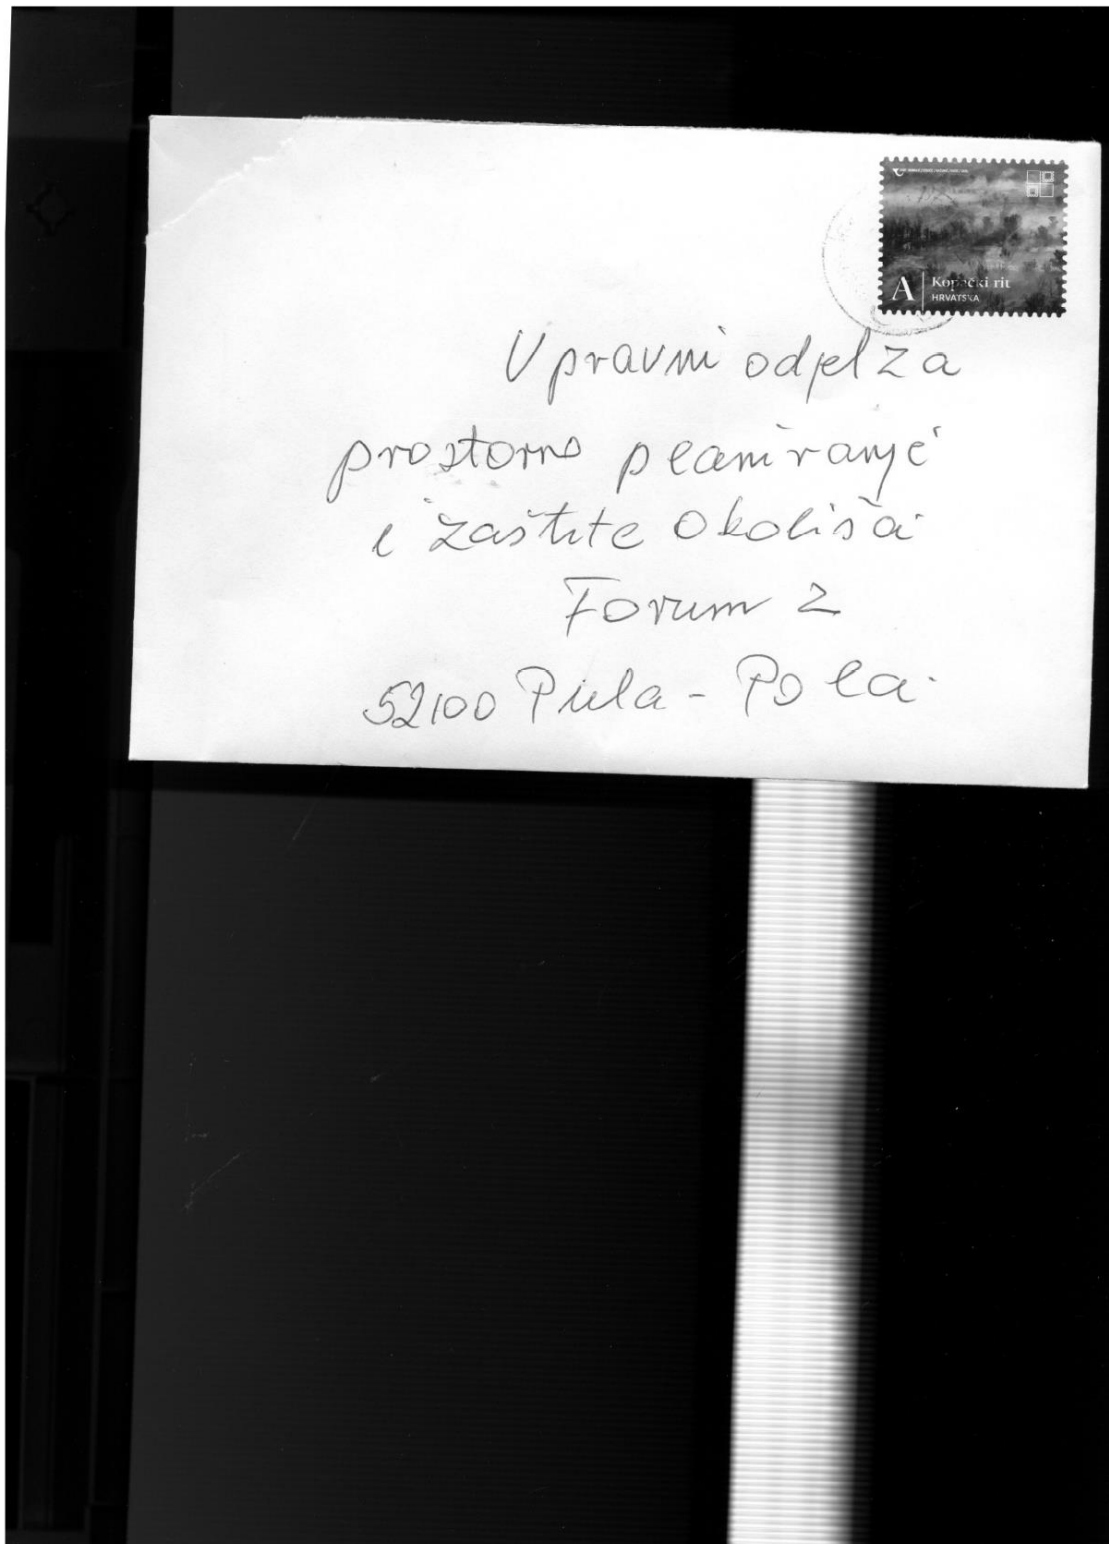 A
Kopački rit
HRVATSKA
Upravni odjel za
prostorno planiranje
i zaštite okoliša
Forum 2
52100 Pula - Pola